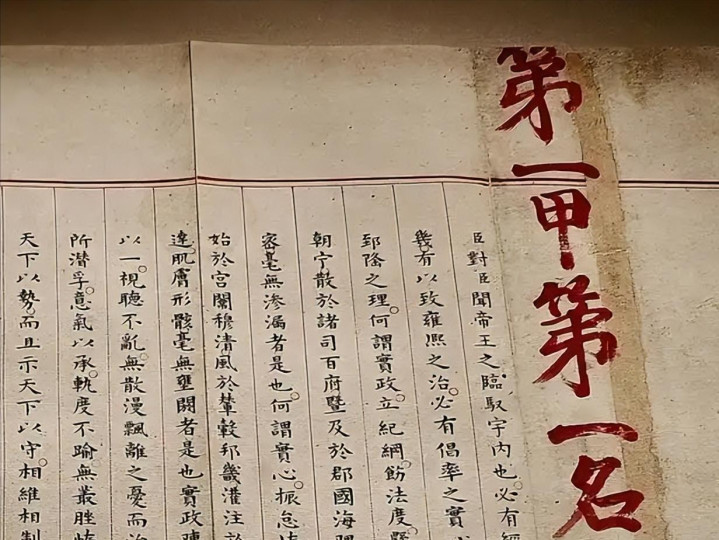 第一甲第一名
臣對臣聞帝王之臨馭宇內也必有經
幾有以致雍熙之治必有倡率之實
郅隆之理何謂實政立紀綱飭法度
朝宁散於諸司百府暨及於郡國海隅
密毫無滲漏者是也何謂實心振怠
始於宮閫穆清風於輦轂邦畿灌注於
達肌膚形骸毫無壅閼者是也實政陳
以一視聽不亂無散漫飄離之憂而治
所潛孚意氣以承軌度不踰無叢脞
天下以勢而且示天下以守相維相制